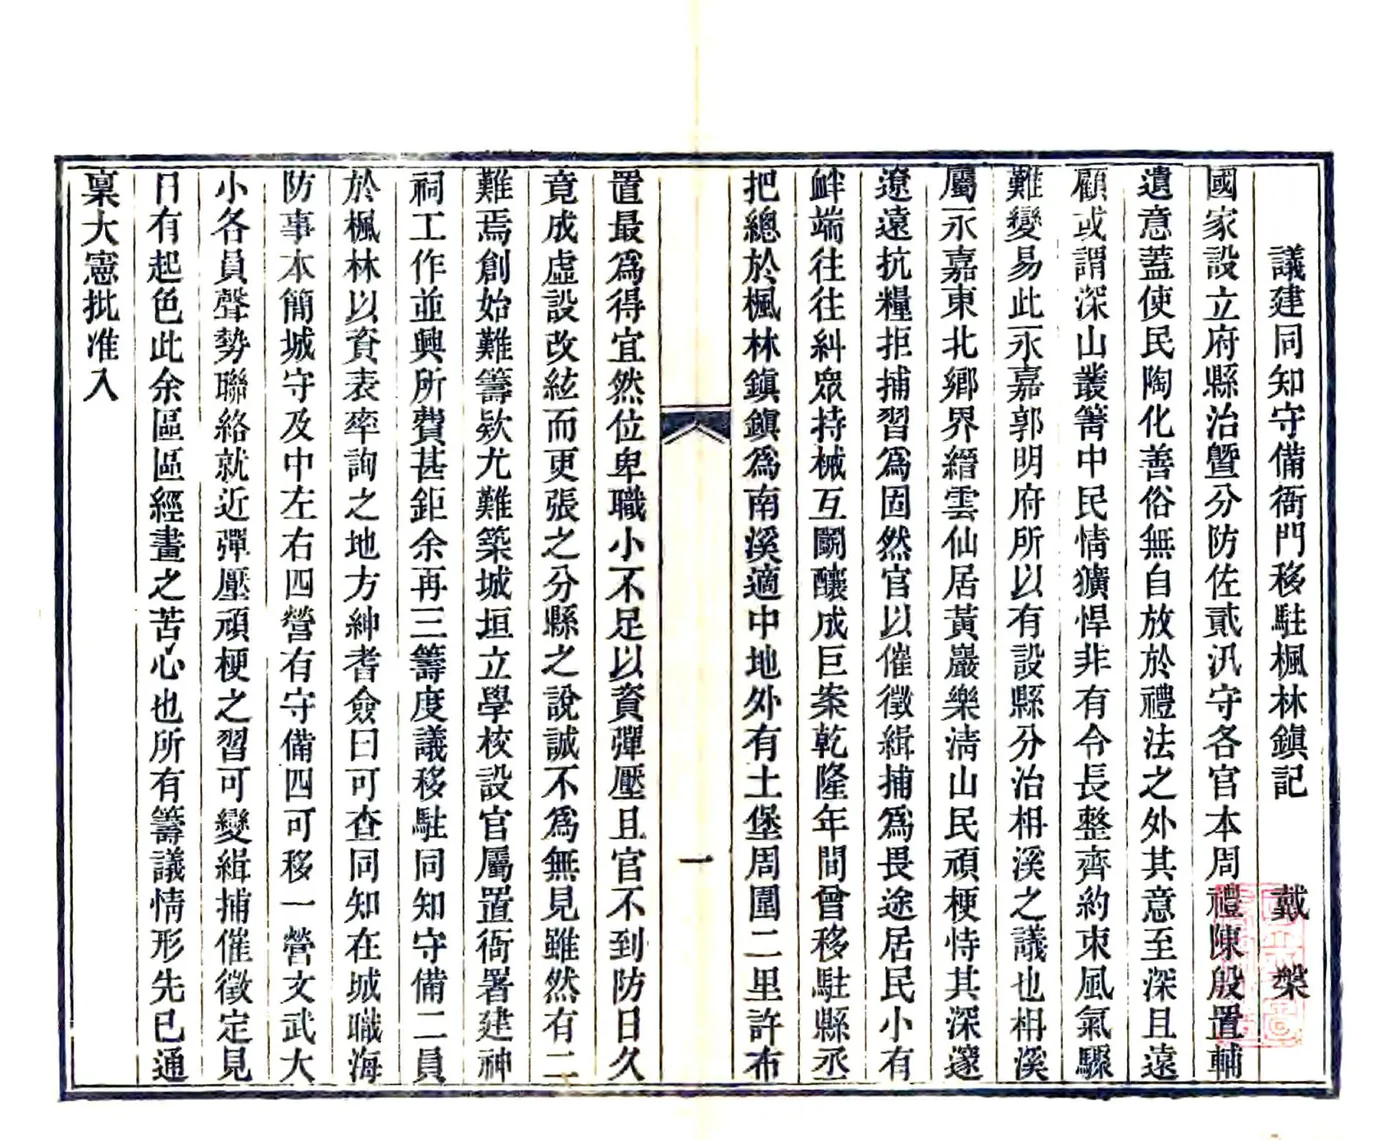 議建同知守備衙門移駐楓林鎮記 戴槃
國家設立府縣治暨分防佐貳汛守各官本周禮陳殷置輔
遺意蓋使民陶化善俗無自放於禮法之外其意至深且遠
顧或謂深山叢箐中民情獷悍非有令長整齊約束風氣驟
難變易此永嘉郭明府所以有設縣分治枏溪之議也枏溪
屬永嘉東北鄉界縉雲仙居黃巖樂淸山民頑梗恃其深邃
遼遠抗糧拒捕習爲固然官以催徵緝捕爲畏途居民小有
衅端往往糾眾持械互鬭釀成巨案乾隆年間曾移駐縣丞
把總於楓林鎮鎮爲南溪適中地外有土堡周圍二里許布
一
置最爲得宜然位卑職小不足以資彈壓且官不到防日久
竟成虛設改絃而更張之分縣之說誠不爲無見雖然有二
難焉創始難籌欵尤難築城垣立學校設官屬置衙署建神
祠工作並興所費甚鉅余再三籌度議移駐同知守備二員
於楓林以資表率詢之地方紳耆僉曰可查同知在城職海
防事本簡城守及中左右四營有守備四可移一營文武大
小各員聲勢聯絡就近彈壓頑梗之習可變緝捕催徵定見
日有起色此余區區經畫之苦心也所有籌議情形先已通
稟大憲批准入